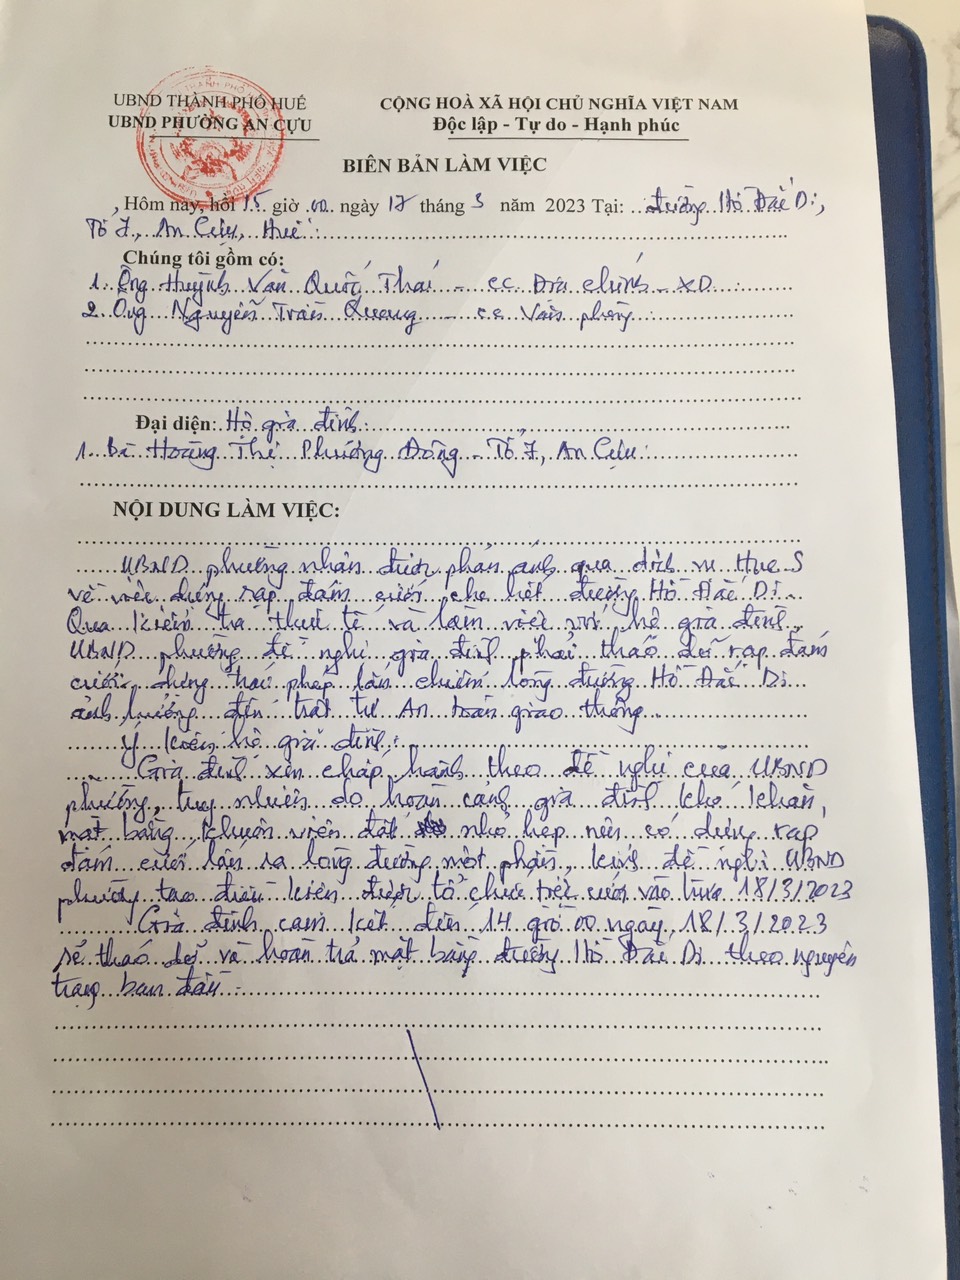 UBND THÀNH PHỐ HUẾ
UBND PHƯỜNG AN CỰU
CỘNG HOÀ XÃ HỘI CHỦ NGHĨA VIỆT NAM
Độc lập - Tự do - Hạnh phúc
BIÊN BẢN LÀM VIỆC
, Hôm nay, hồi 15 giờ 00 ngày 17 tháng 3 năm 2023 Tại: đường Hồ Đắc Di,
Tổ 7, An Cựu, Huế
Chúng tôi gồm có:
1. Ông Huỳnh Văn Quốc Thái - cc Địa chính - XD
2. Ông Nguyễn Trần Quang - cc Văn phòng
Đại diện: Hộ gia đình
1. Bà Hoàng Thị Phương Đông - Tổ 7, An Cựu
NỘI DUNG LÀM VIỆC:
UBND phường nhận được phản ánh qua dịch vụ Hue S
về việc dựng rạp đám cưới che hết đường Hồ Đắc Di.
Qua kiểm tra thực tế và làm việc với hộ gia đình,
UBND phường đề nghị gia đình phải tháo dỡ rạp đám
cưới dựng trái phép lấn chiếm lòng đường Hồ Đắc Di
ảnh hưởng đến trật tự An toàn giao thông.
Ý kiến hộ gia đình:
Gia đình xin chấp hành theo đề nghị của UBND
phường, tuy nhiên do hoàn cảnh gia đình khó khăn,
mặt bằng khuôn viên đất nhỏ hẹp nên có dựng rạp
đám cưới lấn ra lòng đường một phần, kính đề nghị UBND
phường tạo điều kiện được tổ chức tiệc cưới vào 18/3/2023
Gia đình cam kết đến 14 giờ 00 ngày 18/3/2023
sẽ tháo dỡ và hoàn trả mặt bằng đường Hồ Đắc Di theo nguyên
trạng ban đầu.